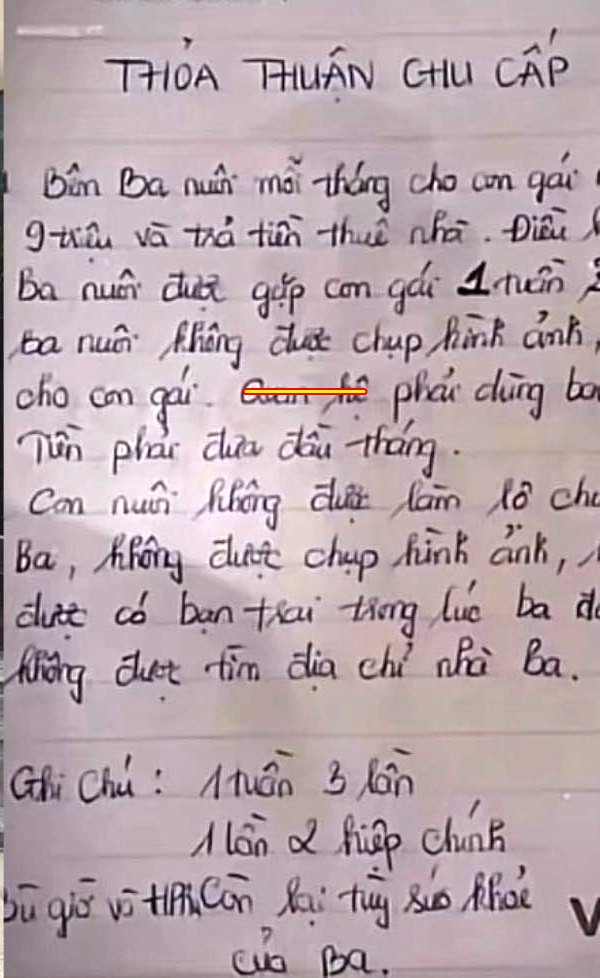 THỎA THUẬN CHU CẤP
Bên Ba nuôi mỗi tháng cho con gái
9 triệu và trả tiền thuê nhà. Điều
Ba nuôi được gặp con gái 1 tuần 3
ba nuôi không được chụp hình ảnh,
cho con gái. Quan hệ phải dùng
Tiền phải đưa đầu tháng.
Con nuôi không được làm lộ
Ba, không được chụp hình ảnh,
được có bạn trai trong lúc ba
không được tìm địa chỉ nhà Ba.
Ghi Chú: 1 tuần 3 lần
1 lần 2 hiệp chính
Bù giờ và Còn lại tùy sức khoẻ
của Ba.
V